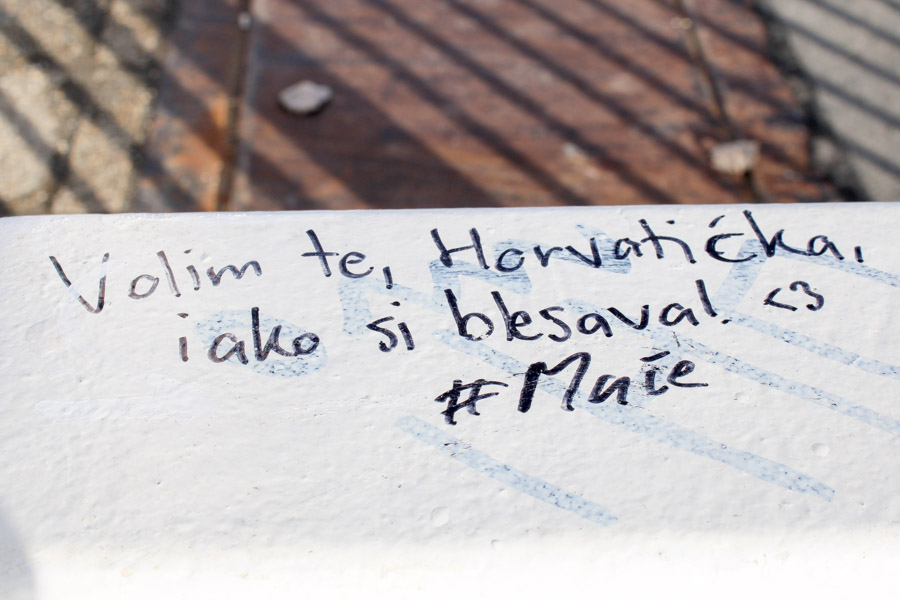 Volim te, Horvatićka,
iako si blesava! <3
#Maće